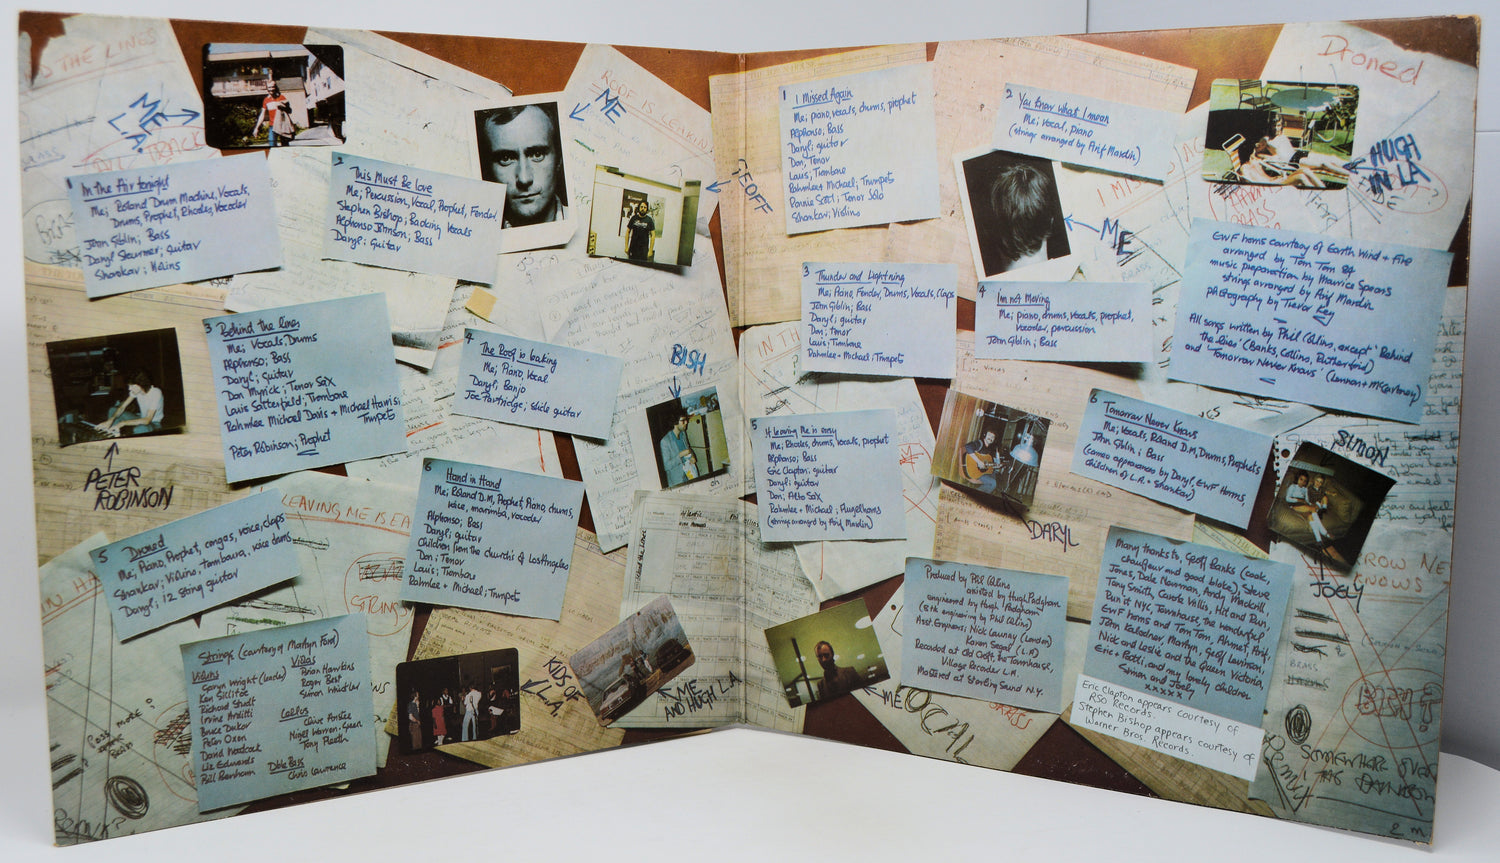 ME
L.A.
1 In the Air tonight
Me; Roland Drum Machine, Vocals,
Drums, Prophet, Rhodes, Vocoder
John Giblin; Bass
Daryl Stuermer; guitar
Shankar; Violins
2 This Must Be love
Me; Percussion, Vocal, Prophet, Fender
Stephen Bishop; Backing Vocals
Alphonso Johnson; Bass
Daryl; Guitar
ROOF IS LEAKING
ME
GEOFF
3 Behind the lines
Me; Vocals, Drums
Alphonso; Bass
Daryl; Guitar
Don Myrick; Tenor Sax
Louis Satterfield; Trombone
Rahmlee Michael Davis + Michael Harris;
Trumpets
Peter Robinson; Prophet
4 The Roof is leaking
Me; Piano, Vocal
Daryl; Banjo
Joe Partridge; slide guitar
BISH
PETER
ROBINSON
5 Droned
Me; Piano, Prophet, congas, voice, claps
Shankar; Violins, tamboura, voice drums
Daryl; 12 string guitar
LEAVING ME IS EA
STRINGS
6 Hand in Hand
Me; Roland D.M, Prophet, Piano, drums,
voice, marimba, vocoder
Alphonso; Bass
Daryl; guitar
Children from the churches of Los Angeles
Don; Tenor
Louis; Trombone
Rahmlee + Michael; Trumpets
Strings (courtesy of Martyn Ford)
Violins
Gavyn Wright (leader)
Ken Sillitoe
Richard Studt
Irvine Arditti
Bruce Dukov
Peter Oxer
David Woodcock
Liz Edwards
Bill Benham
Violas
Brian Hawkins
Roger Best
Simon Whistler
Cellos
Clive Anstee
Nigel Warren-Green
Tony Pleeth
Dble Bass
Chris Lawrence
KIDS OF
L.A.
ME
AND HUGH L.A
1 I Missed Again
Me; piano, vocals, drums, prophet
Alphonso; Bass
Daryl; guitar
Don; Tenor
Louis; Trombone
Rahmlee + Michael; Trumpets
Ronnie Scott; Tenor Solo
Shankar; Violins
2 You know what I mean
Me; vocal, piano
(strings arranged by Arif Mardin)
Droned
HUGH
IN LA
ME
3 Thunder and Lightning
Me; Piano, Fender, Drums, Vocals, Claps
John Giblin; Bass
Daryl; guitar
Don; tenor
Louis; Trombone
Rahmlee + Michael; Trumpets
4 I'm not Moving
Me; piano, drums, vocals, prophet,
vocoder, percussion
John Giblin; Bass
EWF horns courtesy of Earth Wind + Fire
arranged by Tom Tom 84
music preparation by Maurice Spears
strings arranged by Arif Mardin
photography by Trevor Key
All songs written by Phil Collins, except 'Behind
the lines' (Banks, Collins, Rutherford)
and 'Tomorrow Never Knows' (Lennon + McCartney)
5 If Leaving Me is easy
Me; Rhodes, drums, vocals, prophet
Alphonso; Bass
Eric Clapton; guitar
Daryl; guitar
Don; Alto Sax
Rahmlee + Michael; Flugelhorns
(strings arranged by Arif Mardin)
DARYL
6 Tomorrow Never Knows
Me; Vocals, Roland D.M, Drums, Prophets
John Giblin; Bass
(cameo appearances by Daryl, EWF Horns,
children of L.A. + Shankar)
SIMON
JOELY
ME
Produced by Phil Collins
assisted by Hugh Padgham
engineered by Hugh Padgham
(8 tk engineering by Phil Collins)
Asst. Engineers; Nick Launay (London)
Karen Siegal (L.A.)
Recorded at Old Croft, the Townhouse,
Village Recorder L.A.
Mastered at Sterling Sound N.Y.
Many thanks to, Geoff Banks (cook,
chauffeur and good bloke), Steve
Jones, Dale Newman, Andy Mackrill,
Tony Smith, Carole Willis, Hit and Run,
Run it NYC, Townhouse, the wonderful
EWF horns and Tom Tom, Ahmet, Arif,
John Kalodner, Martyn, Geff Levinson,
Nick and Leslie and the Queen Victoria,
Eric + Patti, and my lovely children
Simon and Joely
x x x x x
Eric Clapton appears courtesy of
RSO Records.
Stephen Bishop appears courtesy of
Warner Bros. Records.
SOMEWHERE OVER